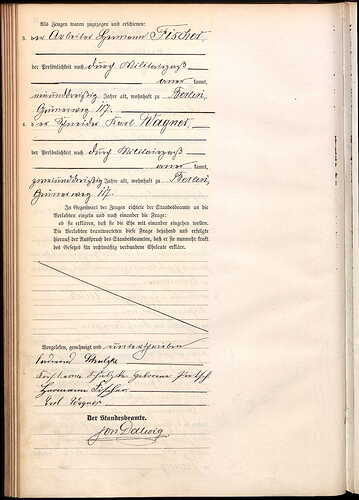 Als Zeugen waren zugezogen und erschienen:
3. der Arbeiter Hermann Fischer,
der Persönlichkeit nach durch Militairpaß
aner kannt,
neunundreißig Jahre alt, wohnhaft zu Berlin,
Grünerweg 117.
4. der Schneider Karl Wagner,
der Persönlichkeit nach durch Militairpaß
aner kannt,
zweiunddreißig Jahre alt, wohnhaft zu Berlin,
Grünerweg 117.
In Gegenwart der Zeugen richtete der Standesbeamte an die
Verlobten einzeln und nach einander die Frage:
ob sie erklären, daß sie die Ehe mit einander eingehen wollen.
Die Verlobten beantworteten diese Frage bejahend und erfolgte
hierauf der Ausspruch des Standesbeamten, daß er sie nunmehr kraft
des Gesetzes für rechtmäßig verbundene Eheleute erkläre.
Vorgelesen, genehmigt und unterschrieben
Schulzke
Schulzke geborene
Hermann Fischer
Karl Wagner
Der Standesbeamte.
von Dalwig